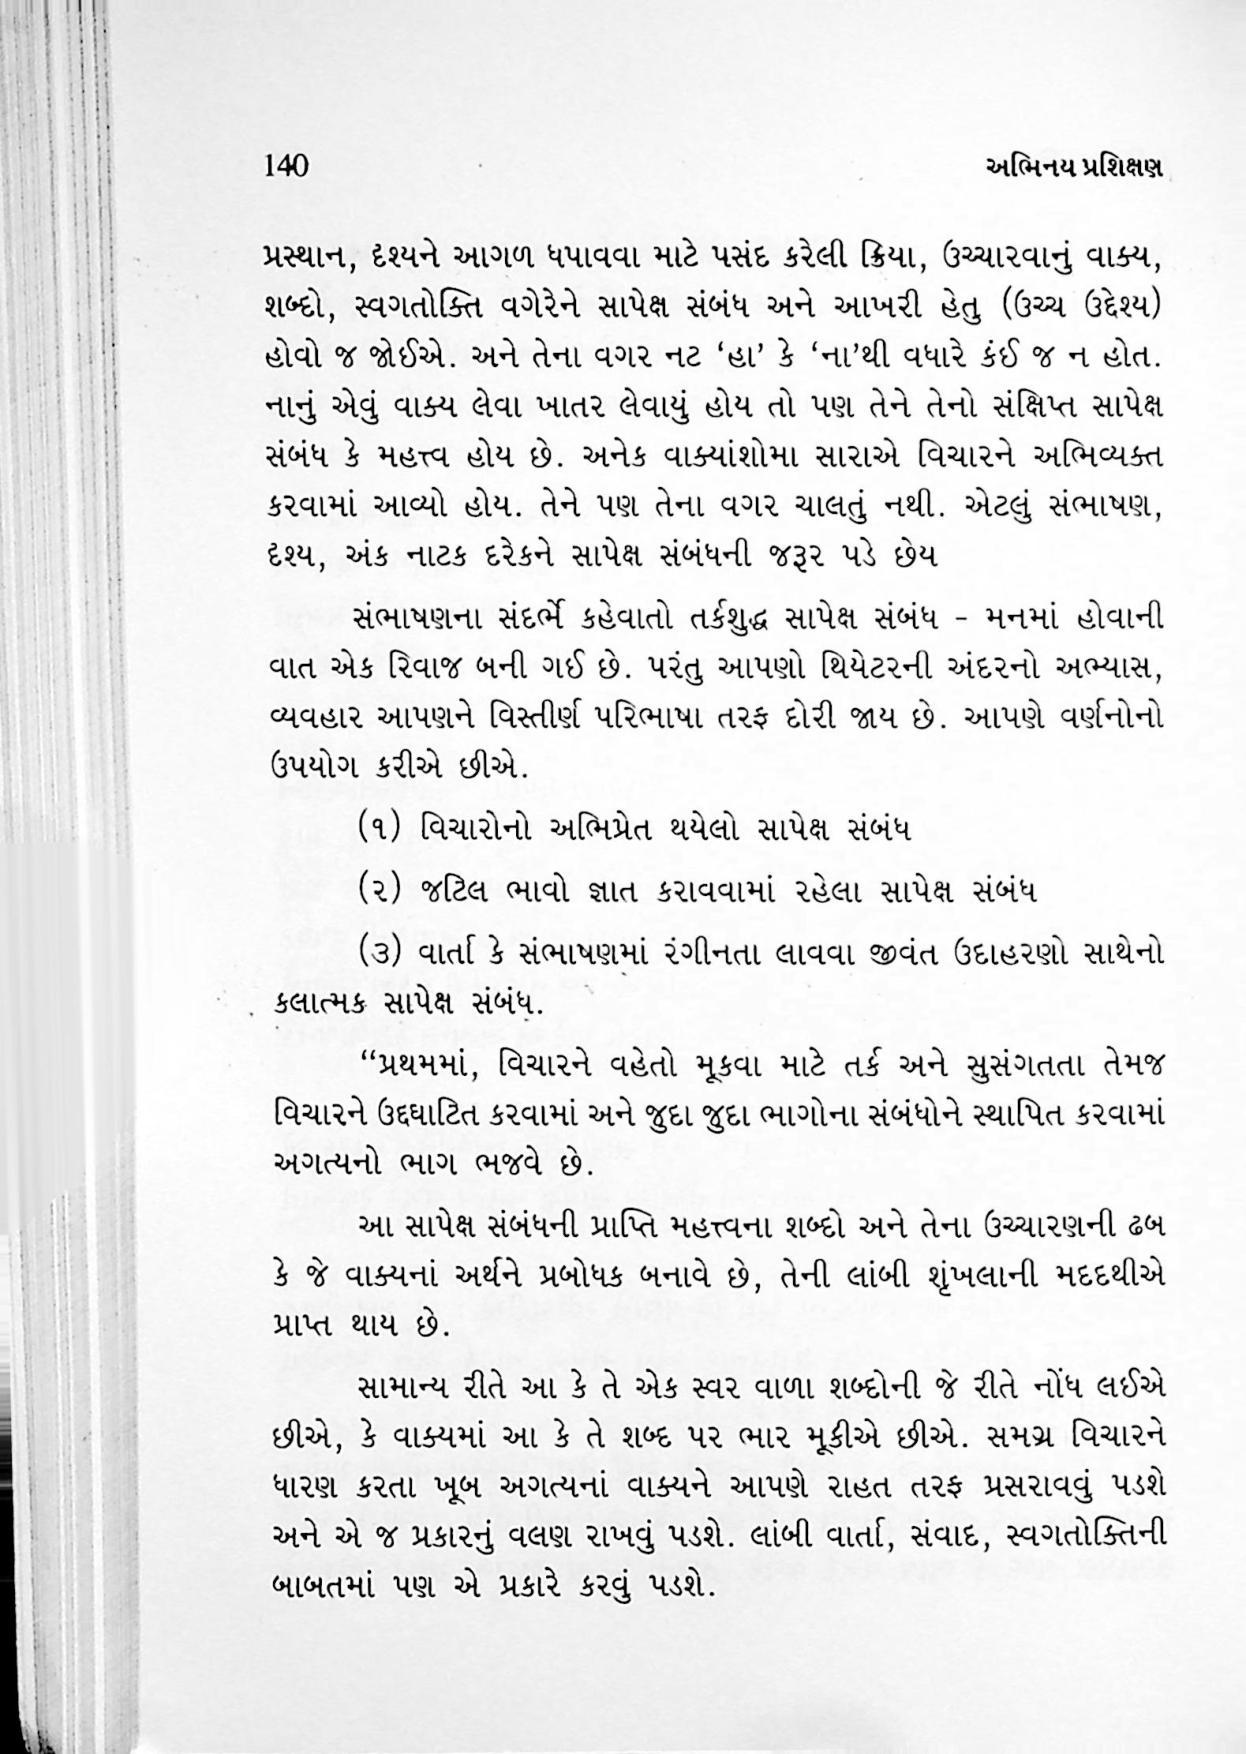 140
અભિનય પ્રશિક્ષણ
પ્રસ્થાન, દૃશ્યને આગળ ધપાવવા માટે પસંદ કરેલી ક્રિયા, ઉચ્ચારવાનું વાક્ય,
શબ્દો, સ્વગતોક્તિ વગેરેને સાપેક્ષ સંબંધ અને આખરી હેતુ (ઉચ્ચ ઉદ્દેશ્ય)
હોવો જ જોઈએ. અને તેના વગર નટ ‘હા’ કે ‘ના’થી વધારે કંઈ જ ન હોત.
નાનું એવું વાક્ય લેવા ખાતર લેવાયું હોય તો પણ તેને તેનો સંક્ષિપ્ત સાપેક્ષ
સંબંધ કે મહત્ત્વ હોય છે. અનેક વાક્યાંશોમા સારાએ વિચારને અભિવ્યક્ત
કરવામાં આવ્યો હોય. તેને પણ તેના વગર ચાલતું નથી. એટલું સંભાષણ,
દૃશ્ય, અંક નાટક દરેકને સાપેક્ષ સંબંધની જરૂર પડે છેય
સંભાષણના સંદર્ભે કહેવાતો તર્કશુદ્ધ સાપેક્ષ સંબંધ - મનમાં હોવાની
વાત એક રિવાજ બની ગઈ છે. પરંતુ આપણો થિયેટરની અંદરનો અભ્યાસ,
વ્યવહાર આપણને વિસ્તીર્ણ પરિભાષા તરફ દોરી જાય છે. આપણે વર્ણનોનો
ઉપયોગ કરીએ છીએ.
(૧) વિચારોનો અભિપ્રેત થયેલો સાપેક્ષ સંબંધ
(૨) જટિલ ભાવો જ્ઞાત કરાવવામાં રહેલા સાપેક્ષ સંબંધ
(૩) વાર્તા કે સંભાષણમાં રંગીનતા લાવવા જીવંત ઉદાહરણો સાથેનો
કલાત્મક સાપેક્ષ સંબંધ.
“પ્રથમમાં, વિચારને વહેતો મૂકવા માટે તર્ક અને સુસંગતતા તેમજ
વિચારને ઉદ્દઘાટિત કરવામાં અને જુદા જુદા ભાગોના સંબંધોને સ્થાપિત કરવામાં
અગત્યનો ભાગ ભજવે છે.
આ સાપેક્ષ સંબંધની પ્રાપ્તિ મહત્ત્વના શબ્દો અને તેના ઉચ્ચારણની ઢબ
કે જે વાક્યનાં અર્થને પ્રબોધક બનાવે છે, તેની લાંબી શૃંખલાની મદદથીએ
પ્રાપ્ત થાય છે.
સામાન્ય રીતે આ કે તે એક સ્વર વાળા શબ્દોની જે રીતે નોંધ લઈએ
છીએ, કે વાક્યમાં આ કે તે શબ્દ પર ભાર મૂકીએ છીએ. સમગ્ર વિચારને
ધારણ કરતા ખૂબ અગત્યનાં વાક્યને આપણે રાહત તરફ પ્રસરાવવું પડશે
અને એ જ પ્રકારનું વલણ રાખવું પડશે. લાંબી વાર્તા, સંવાદ, સ્વગતોક્તિની
બાબતમાં પણ એ પ્રકારે કરવું પડશે.